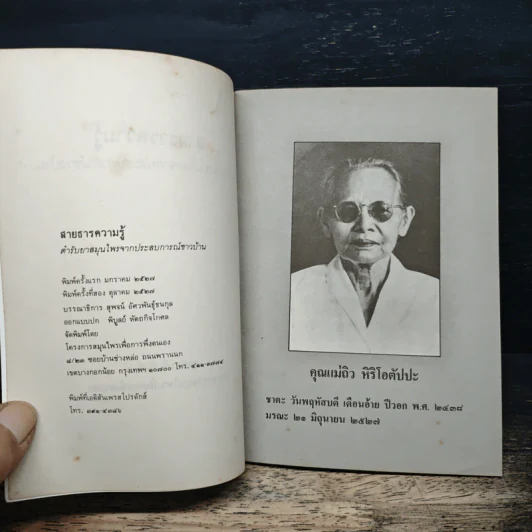 สายธารความรู้
ตำรับยาสมุนไพรจากประสบการณ์ชาวบ้าน
พิมพ์ครั้งแรก มกราคม ๒๕๒๗
พิมพ์ครั้งที่สอง ตุลาคม ๒๕๒๗
บรรณาธิการ สุพจน์ อัศวพันธุ์ธนกุล
ออกแบบปก พิบูลย์ หัตถกิจโกศล
จัดพิมพ์โดย
โครงการสมุนไพรเพื่อการพึ่งตนเอง
๘/๒๓ ซอยบ้านช่างหล่อ ถนนพรานนก
เขตบางกอกน้อย กรุงเทพฯ ๑๐๗๐๐ โทร.
พิมพ์ที่เอดิสันเพรสโปรดักส์
โทร.
คุณแม่ถิว หิริโอตัปปะ
ชาตะ วันพฤหัสบดี เดือนอ้าย ปีวอก พ.ศ. ๒๔๓๘
มรณะ ๒๑ มิถุนายน ๒๕๒๗